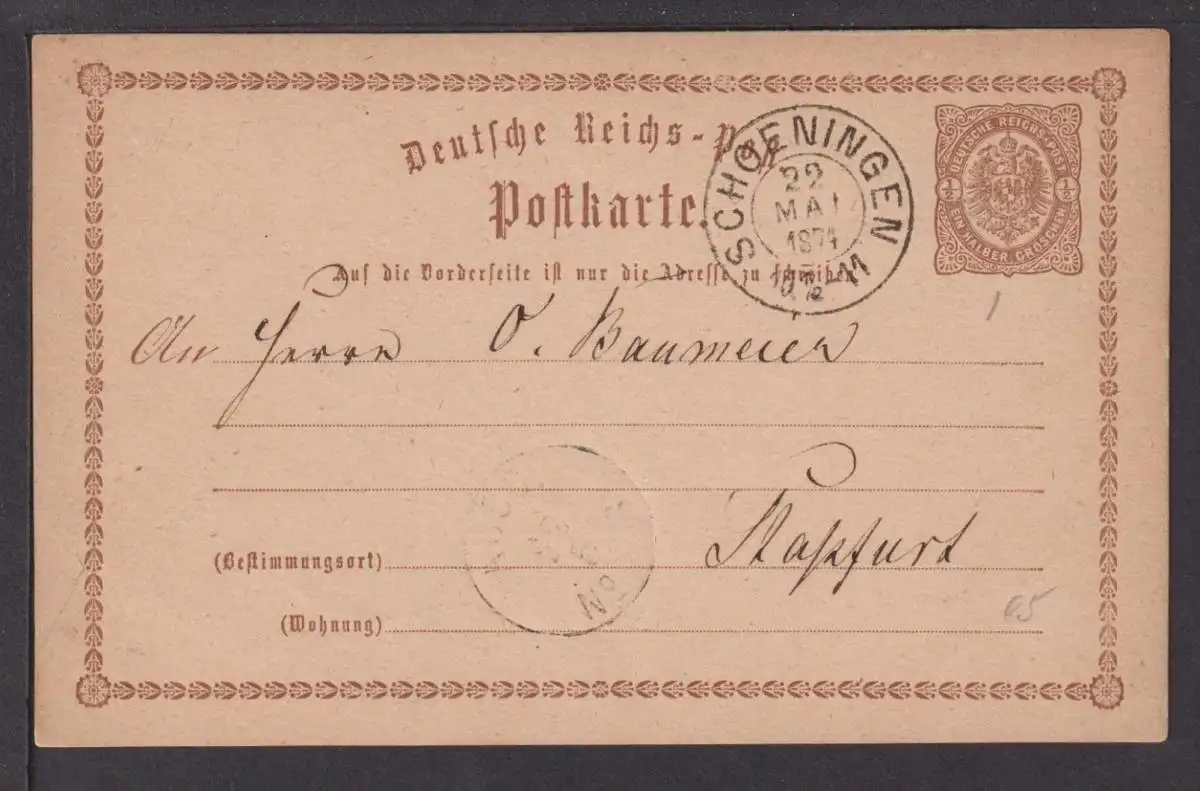 Deutsche Reichs-Post
Postkarte.
Auf die Vorderseite ist nur die Adresse zu schreiben
SCHOENINGEN
22
MAI
1874
DEUTSCHE REICHS-POST
1/2
1/2
EIN HALBER GROSCHEN
An Herrn O. Baumeier
Staßfurt
(Bestimmungsort)
(Wohnung)
No
65